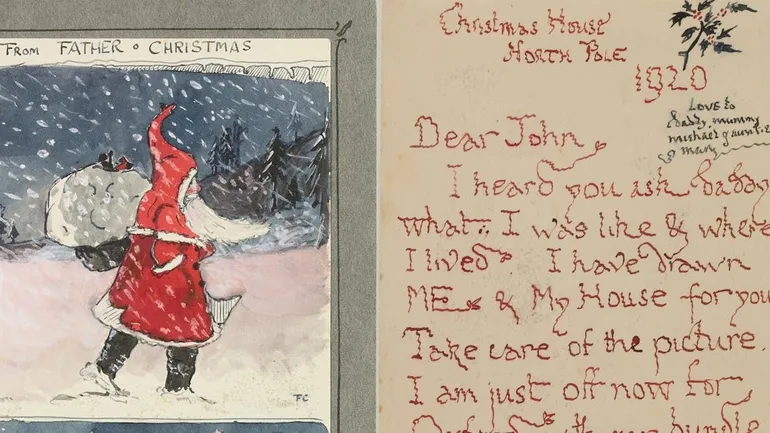 FROM FATHER CHRISTMAS
FC
Christmas House
NORTH POLE
1920
Love to
daddy, mummy
michael & auntie
mary
Dear John
I heard you ask daddy
what I was like & where
I lived I have drawn
ME & My House for you
Take care of the picture.
I am just off now for